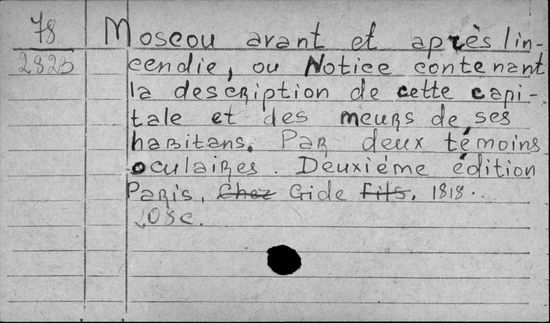 78 Moscou avant et après lin-
2825 cendie, ou Notice contenant
la description de cette capi-
tale et des meurs de ses
habitans. Par deux témoins
oculaires. Deuxiéme édition
Paris, Chez Gide Fils. 1818.